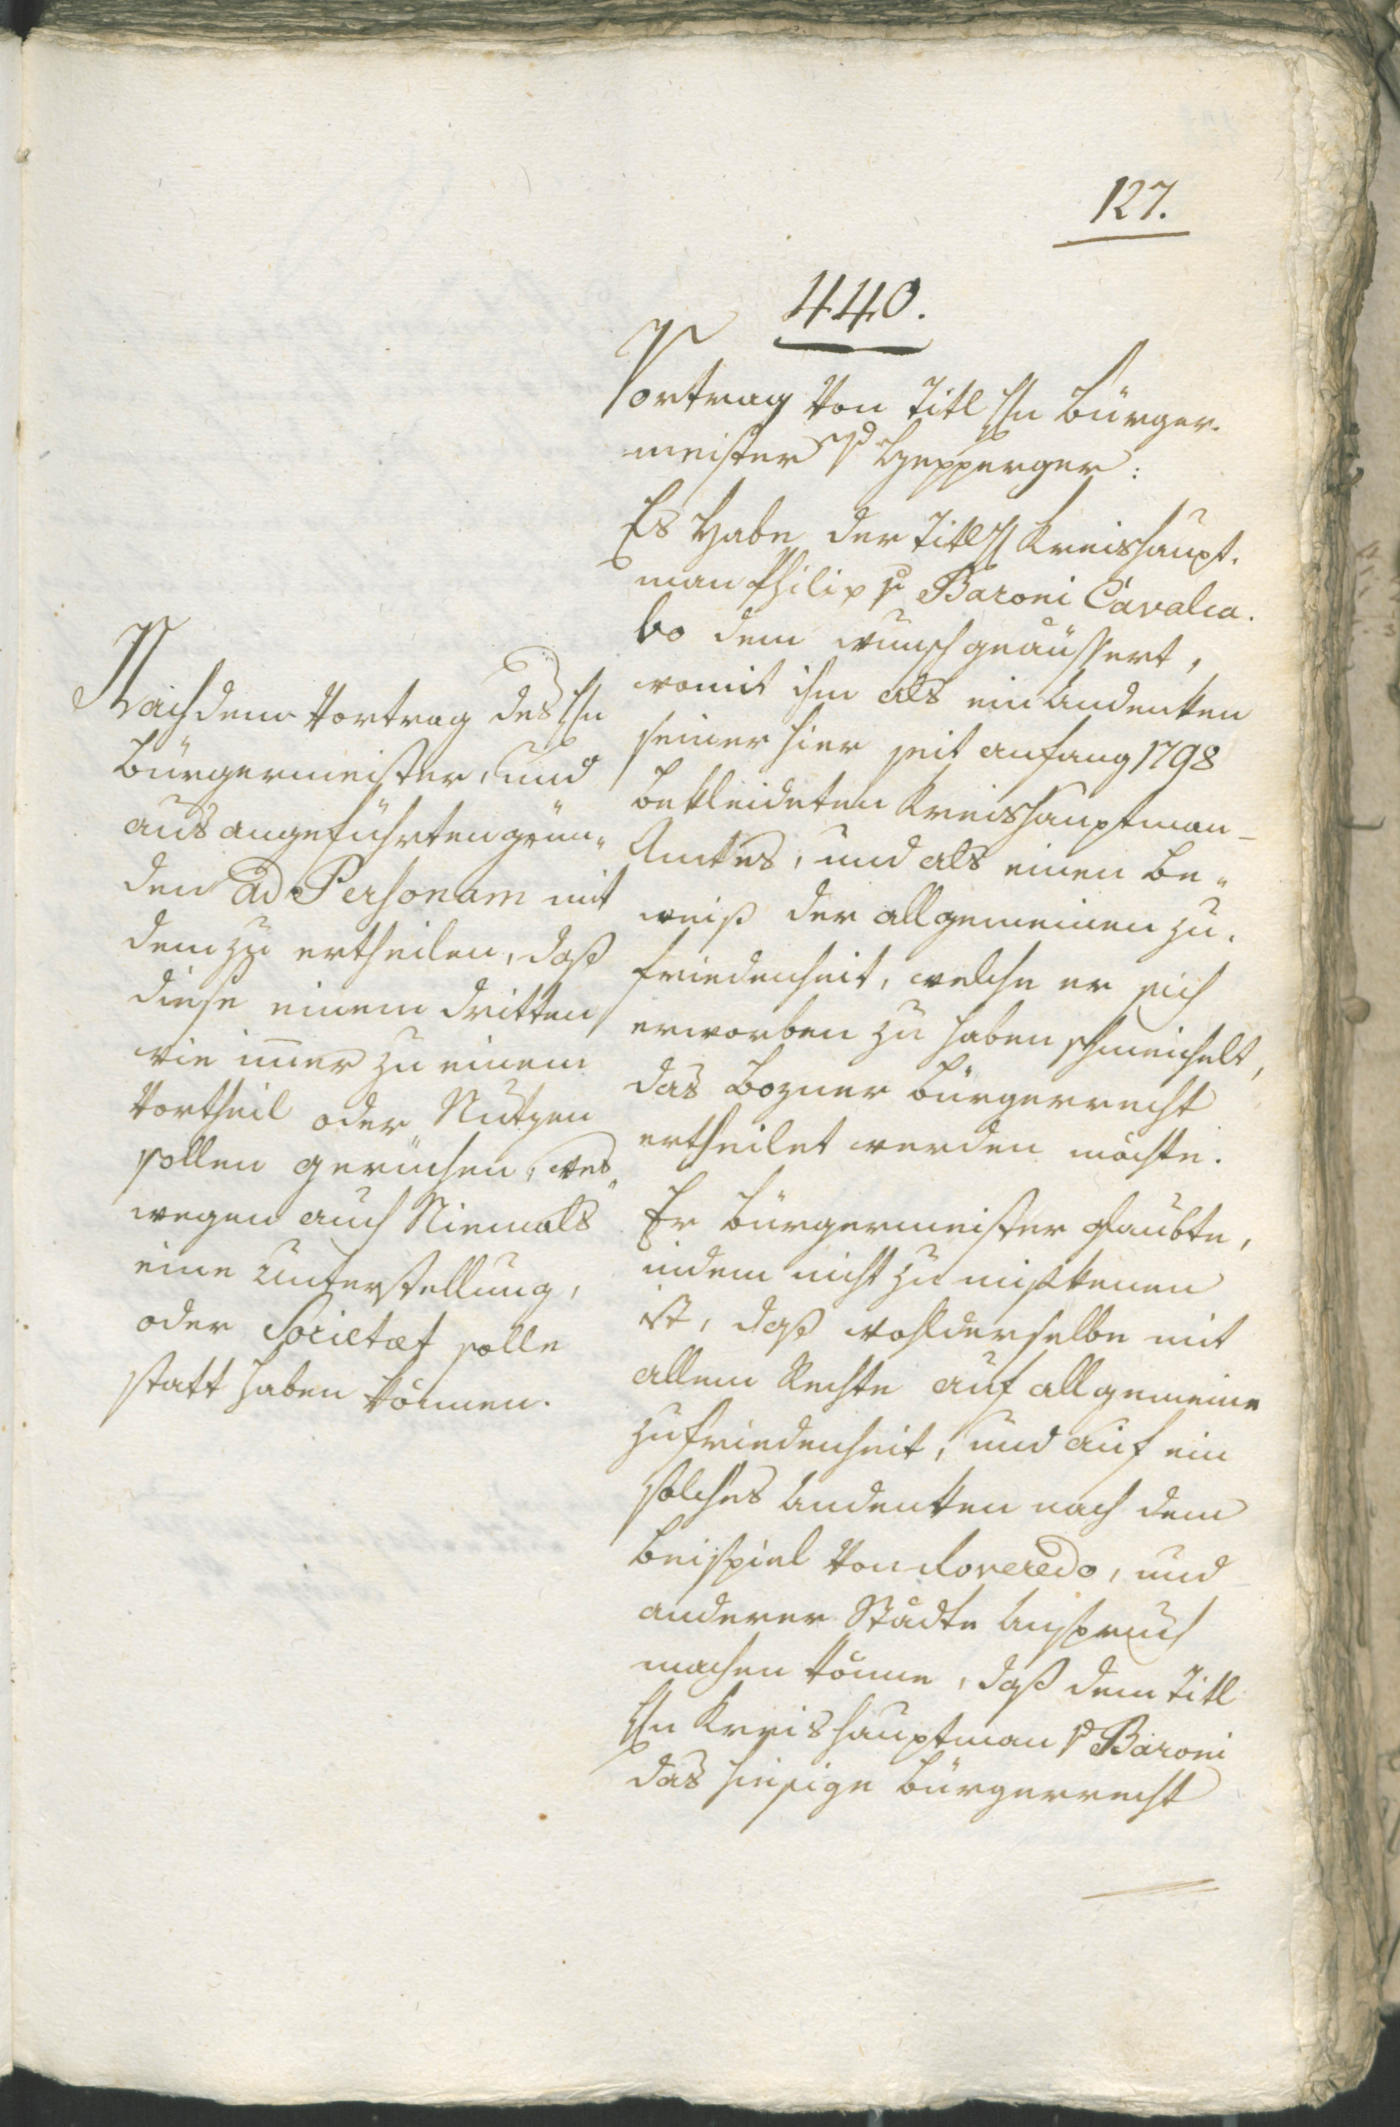 127.
440.
Vortrag von Titl Hn Bürger-
meister v Hepperger:
Es habe der Titl H Kreishaupt-
man Philip v Baroni Cavalca-
bo dem wunsch geäussert,
womit ihm als ein Andenken
seiner hier seit anfang 1798
bekleideten Kreishauptman-
Amtes, und als einen Be-
weiß der allgemeinen Zu-
friedenheit, welche er sich
erworben zu haben schmeichelt,
das Bozner Bürgerrecht
ertheilet werden möchte.
Er Bürgermeister glaubte,
indem nicht zu mißkenen
ist, daß wohlderselbe mit
allem Rechte auf allgemeine
Zufriedenheit, und auf ein
solches Andenken nach dem
Beispiel von Roveredo, und
anderer Städte Anspruch
machen könne, daß dem Titl
Hn Kreishauptman v Baroni
das hiesige Bürgerrecht
Nach dem Vortrag des Hn
Bürgermeister, und
aus angeführten grün-
den ad Personam mit
dem zu ertheilen, daß
diese einem dritten
wie imer zu einem
Vortheil oder Nutzen
sollen gereichen, wes-
wegen auch Niemals
eine Unterstellung,
oder Societæt solle
statt haben können.